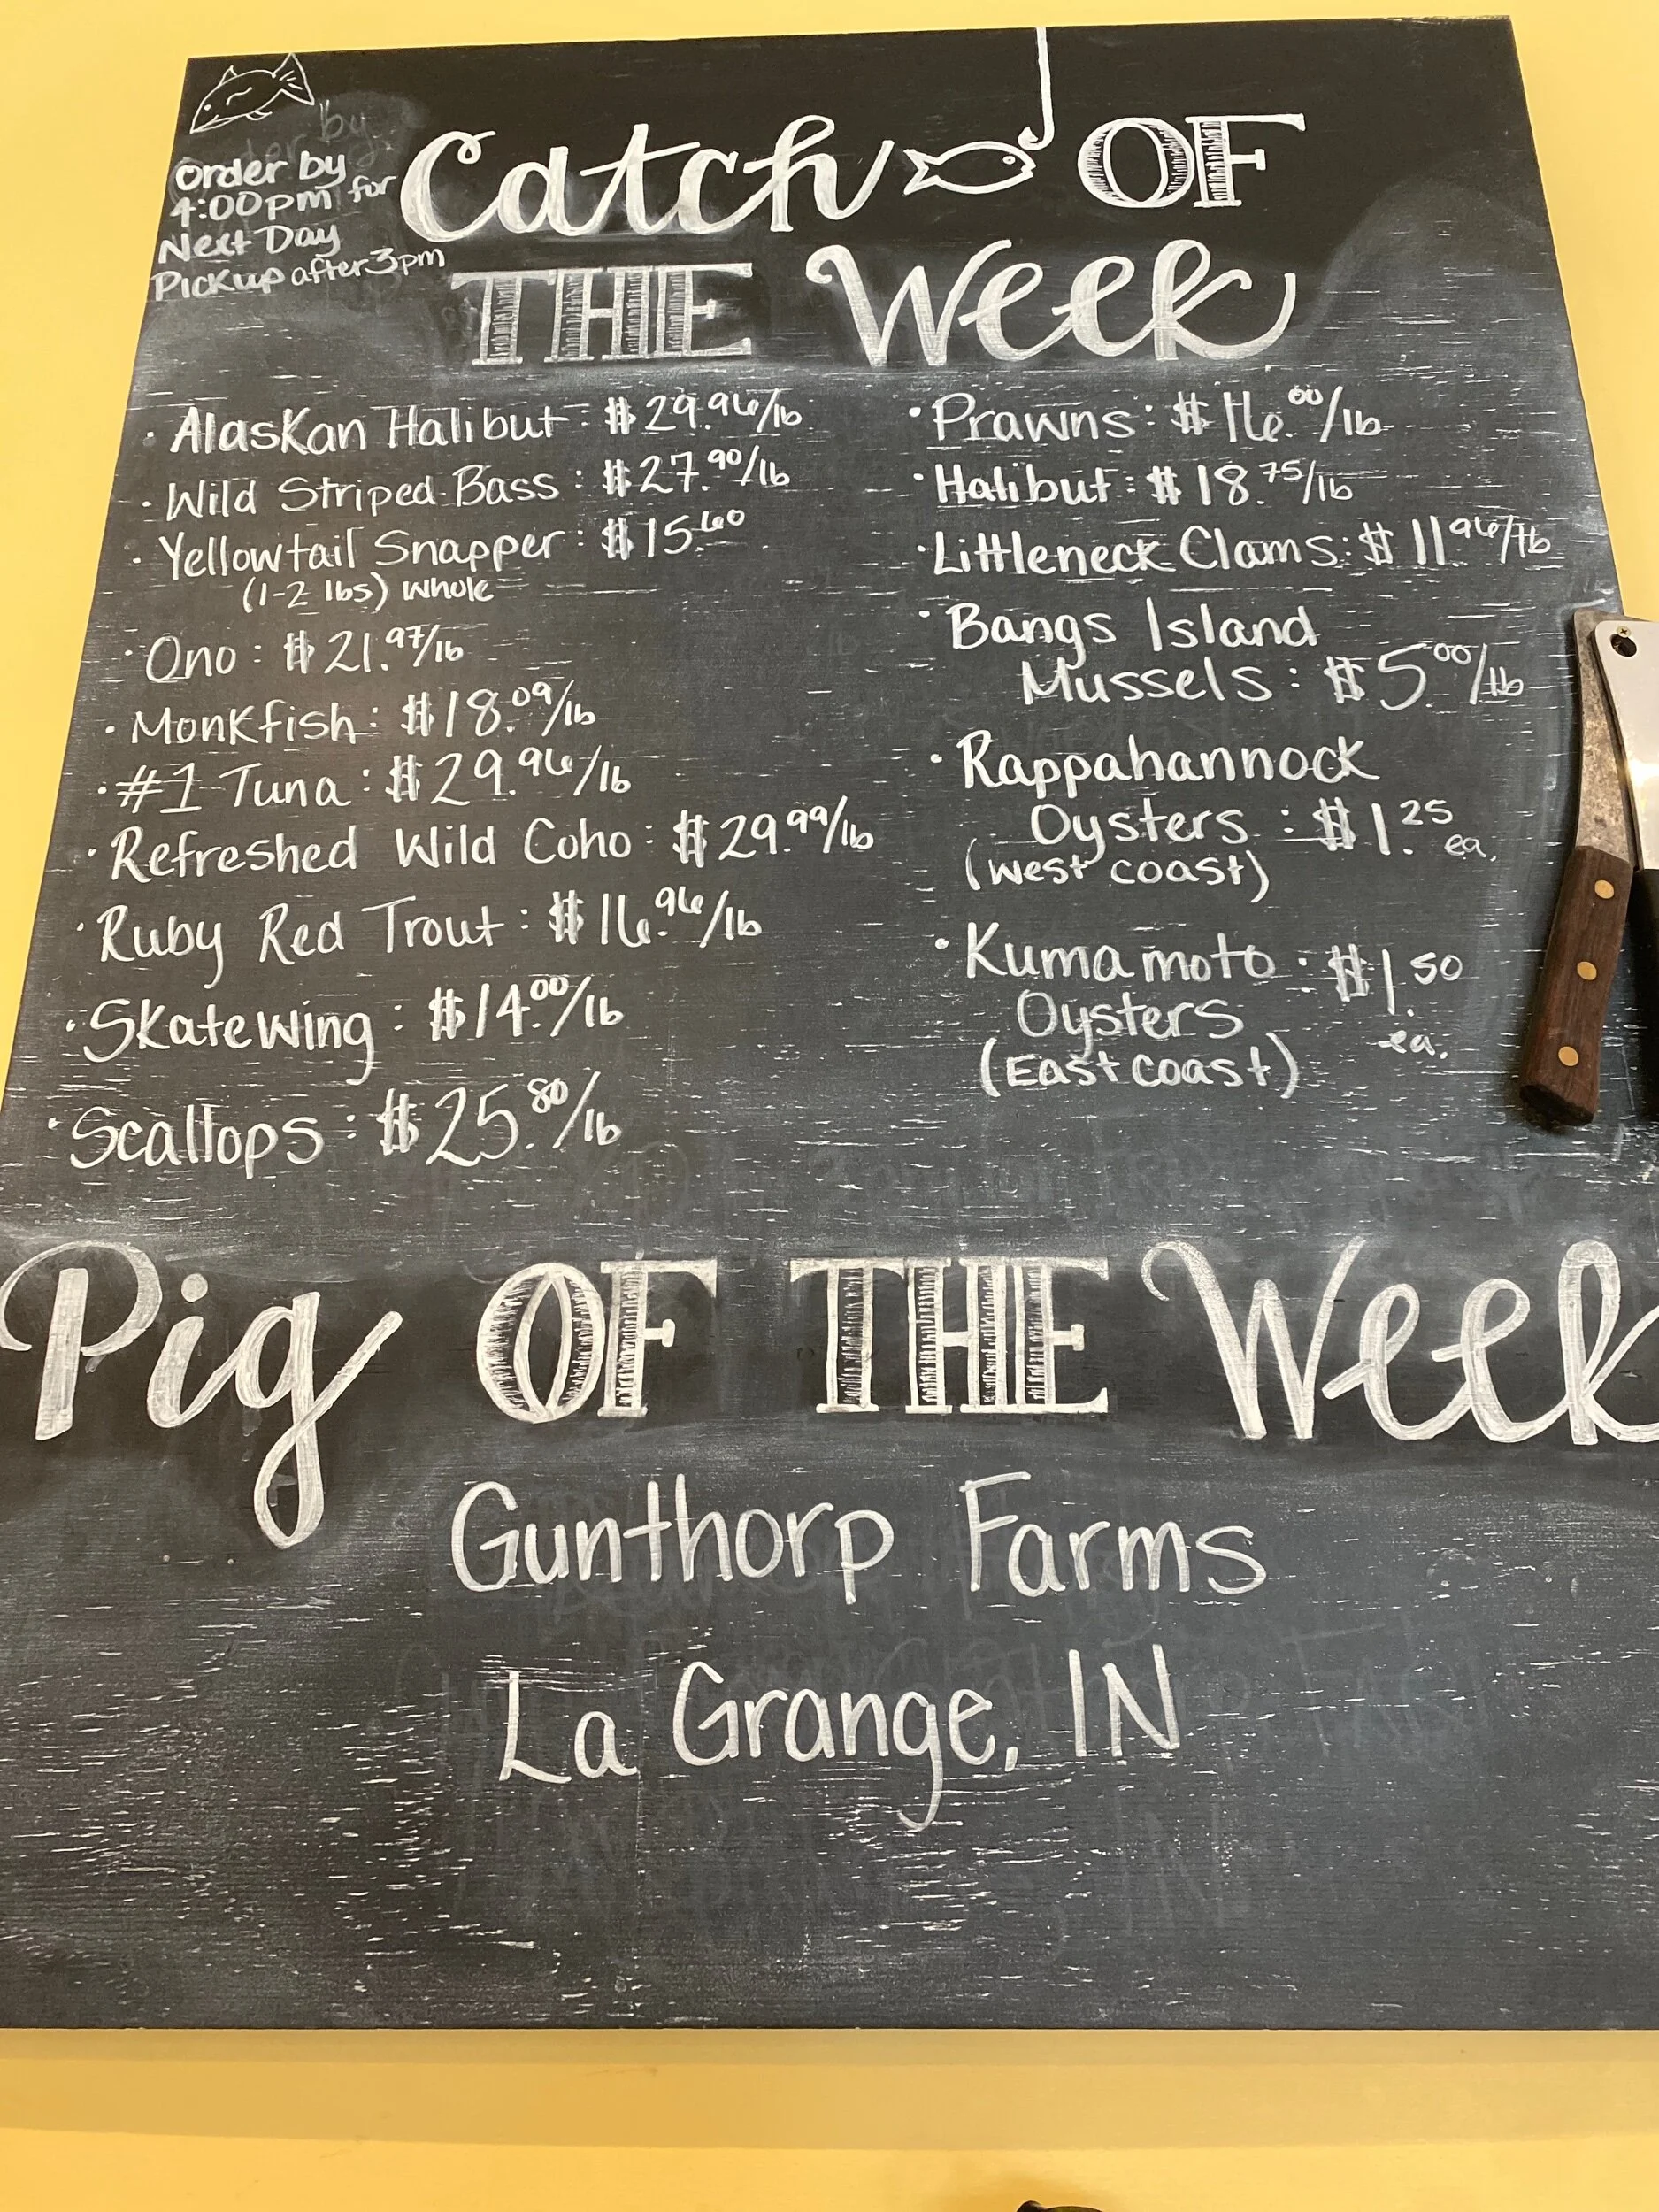 Order by
4:00pm for
Next Day
Pickup after 3pm
Catch OF
THE Week
· Alaskan Halibut: $29.96/lb
· Wild Striped Bass: $27.90/lb
· Yellowtail Snapper: $15.60
(1-2 lbs) Whole
· Ono: $21.97/lb
· Monkfish: $18.09/lb
· #1 Tuna: $29.96/lb
· Refreshed Wild Coho: $29.99/lb
· Ruby Red Trout: $16.96/lb
· Skatewing: $14.00/lb
· Scallops: $25.80/lb
· Prawns: $16.00/lb
· Halibut: $18.75/lb
· Littleneck Clams: $11.96/lb
· Bangs Island
Mussels: $5.00/lb
· Rappahannock
Oysters: $1.25 ea.
(West coast)
· Kumamoto · $1.50
Oysters ea.
(East coast)
Pig OF THE Week
Gunthorp Farms
La Grange, IN